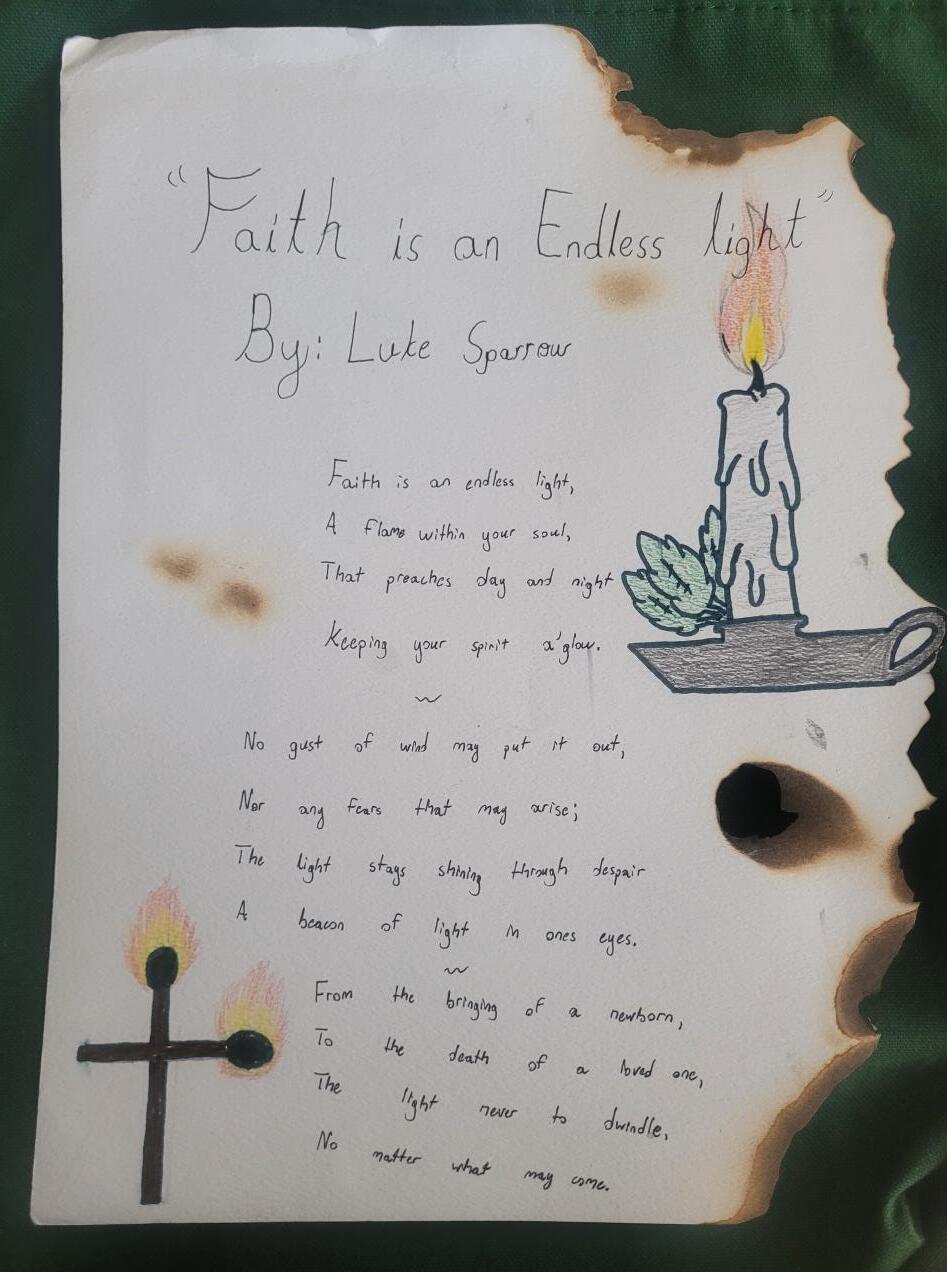 "Faith is an Endless light"
By: Luke Sparrow
Faith is an endless light,
A flame within your soul,
That preaches day and night
Keeping your spirit a'glow.
~
No gust of wind may put it out,
Nor any fears that may arise;
The light stays shining through despair
A beacon of light in ones eyes.
~
From the bringing of a newborn,
To the death of a loved one,
The light never to dwindle,
No matter what may come.